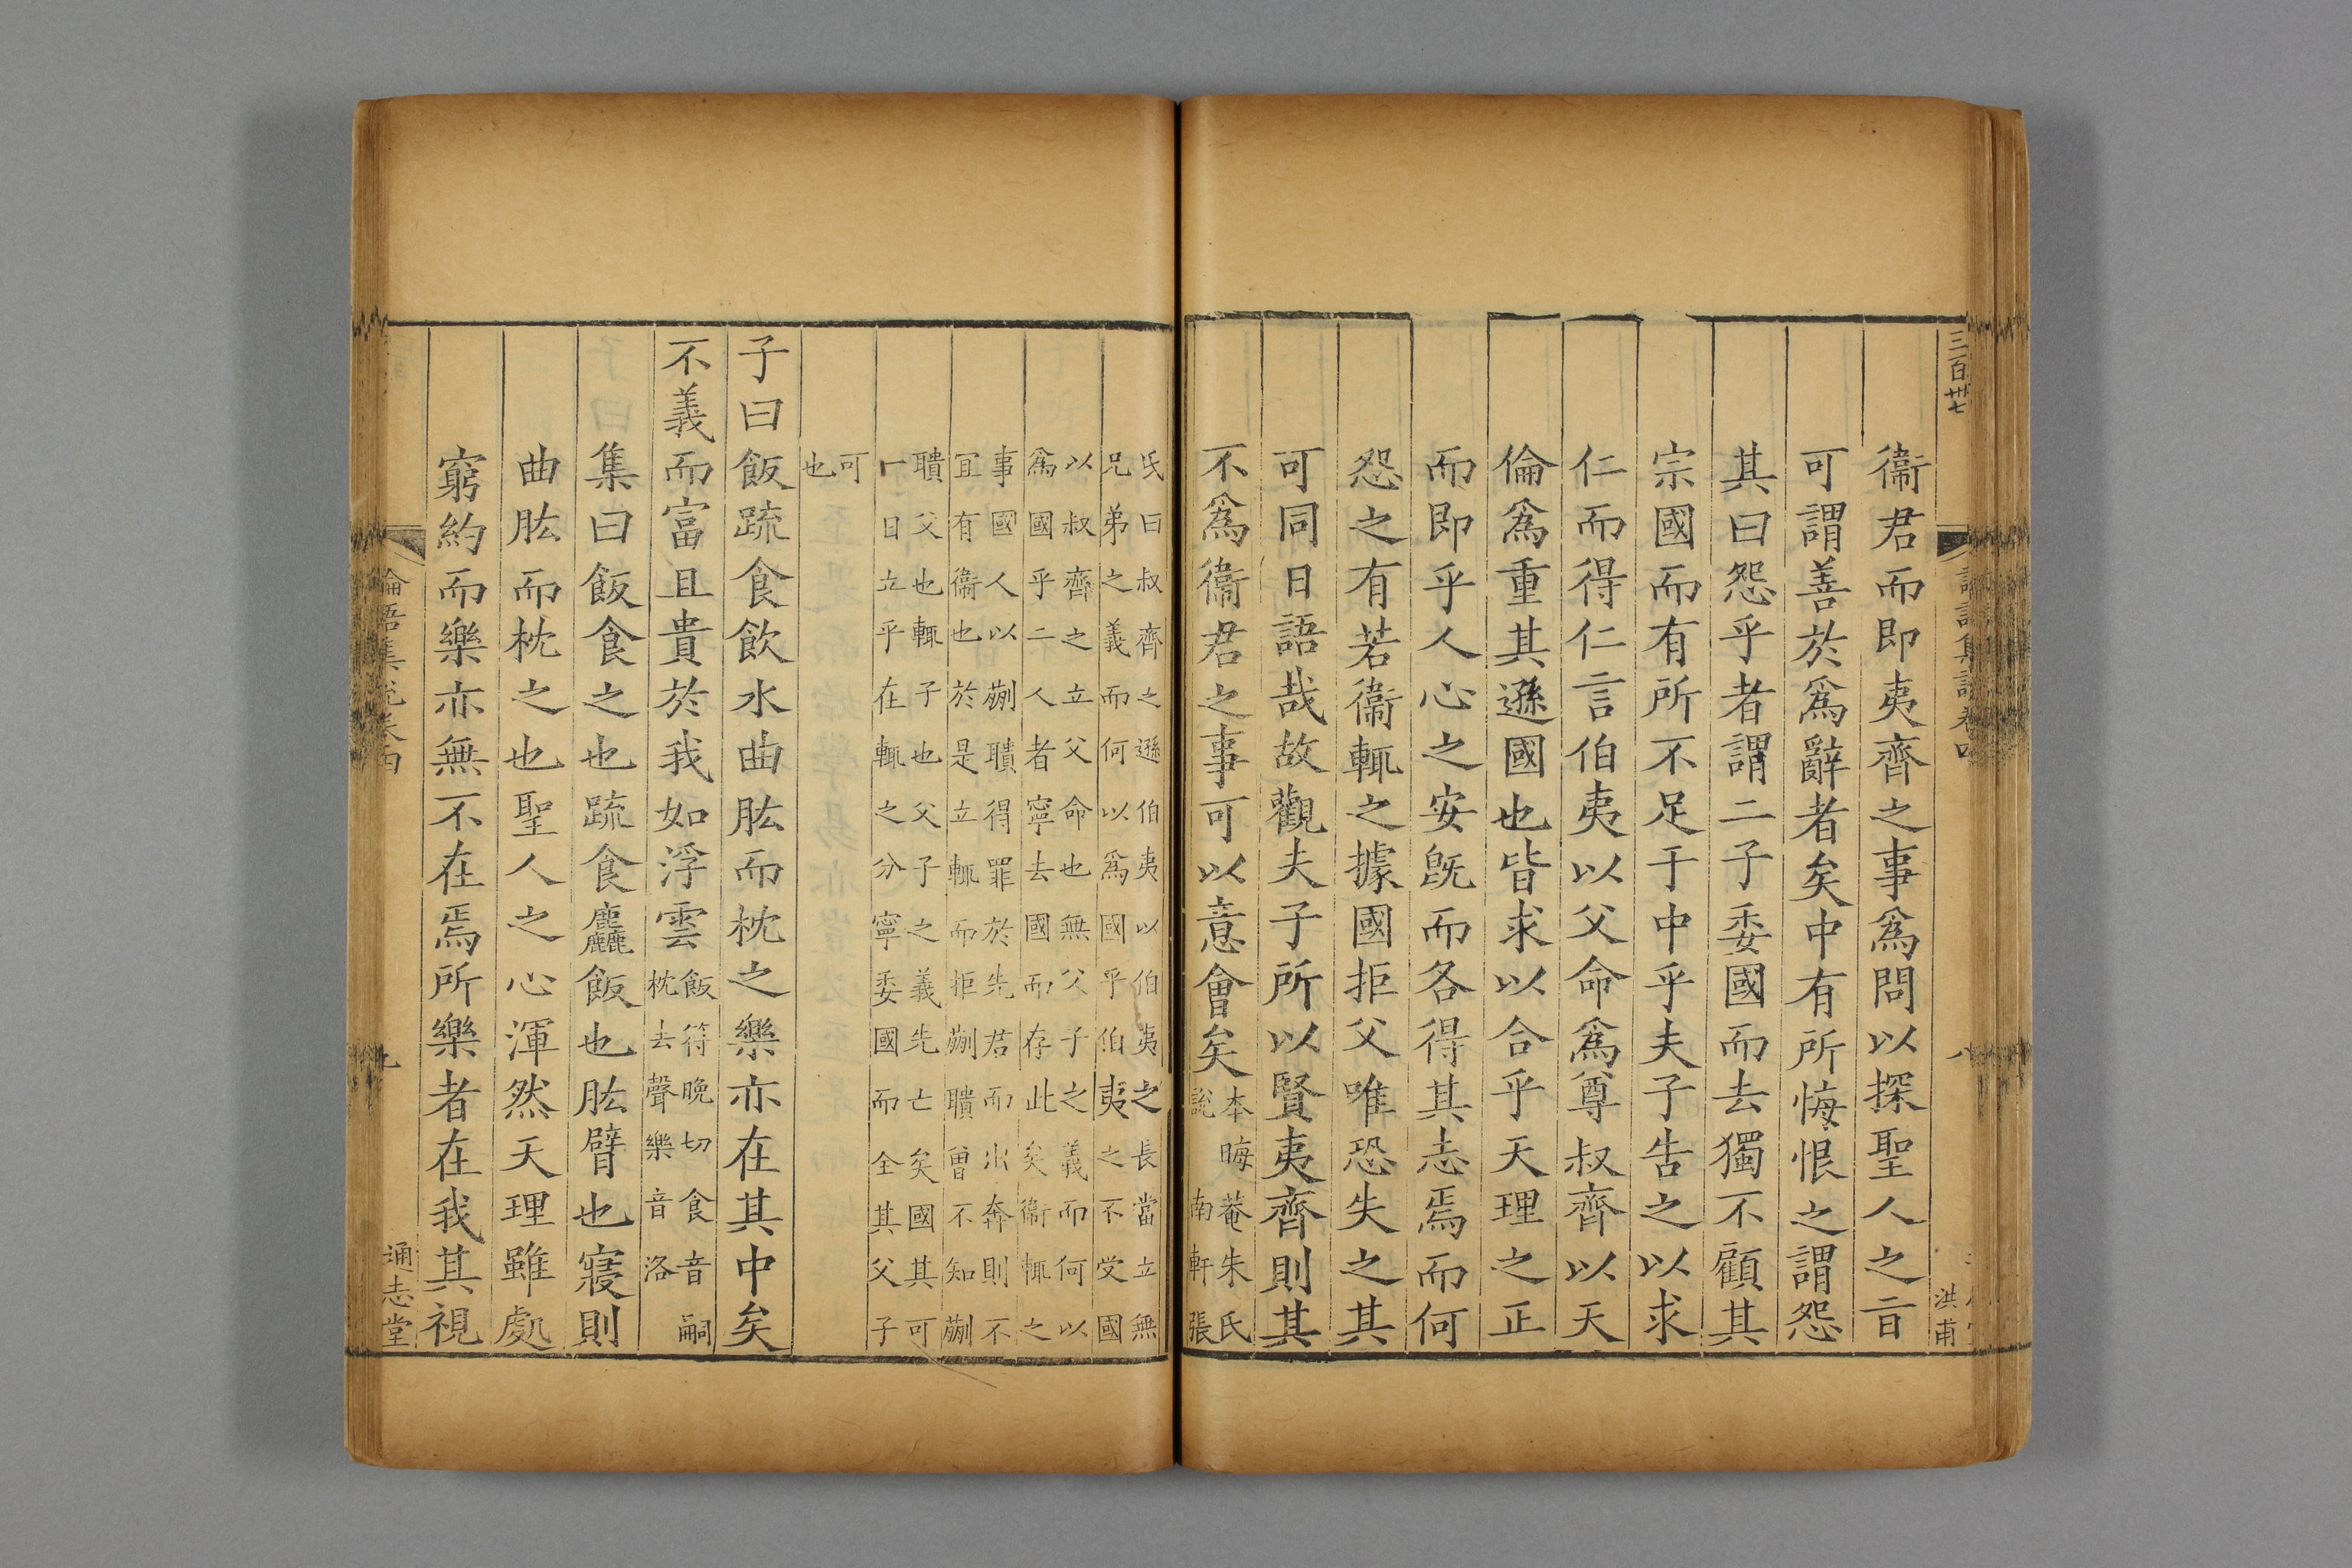 三百卅七
洪甫
衞君而即夷齊之事爲問以探聖人之㫖
可謂善於爲辭者矣中有所悔恨之謂怨
其曰怨乎者謂二子委國而去獨不顧其
宗國而有所不足于中乎夫子告之以求
仁而得仁言伯夷以父命爲尊叔齊以天
倫爲重其遜國也皆求以合乎天理之正
而即乎人心之安旣而各得其志焉而何
怨之有若衞輒之據國拒父唯恐失之其
可同日語哉故觀夫子所以賢夷齊則其
不爲衞君之事可以意會矣
本晦菴朱氏
說 南軒張
氏曰叔齊之遜伯夷以伯夷之長當立無
兄弟之義而何以爲國乎伯夷之不受國
以叔齊之立父命也無父子之義而何以
爲國乎二人者寧去國而存此矣衞輒之
事國人以蒯聵得罪於先君而出奔則不
宜有衞也於是立輒而拒蒯聵曾不知蒯
聵父也輒子也父子之義先亡矣國其可
一日立乎在輒之分寧委國而全其父子
可
也
子曰飯疏食飲水曲肱而枕之樂亦在其中矣
不義而富且貴於我如浮雲
飯符晚切食音嗣
枕去聲樂音洛
集曰飯食之也疏食麤飯也肱臂也寢則
曲肱而枕之也聖人之心渾然天理雖處
窮約而樂亦無不在焉所樂者在我其視
論語集說卷四
九
通志堂